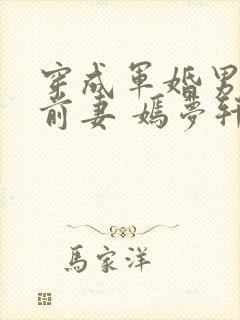 穿成軍婚男
前妻 嫣夢軒
馬家洋